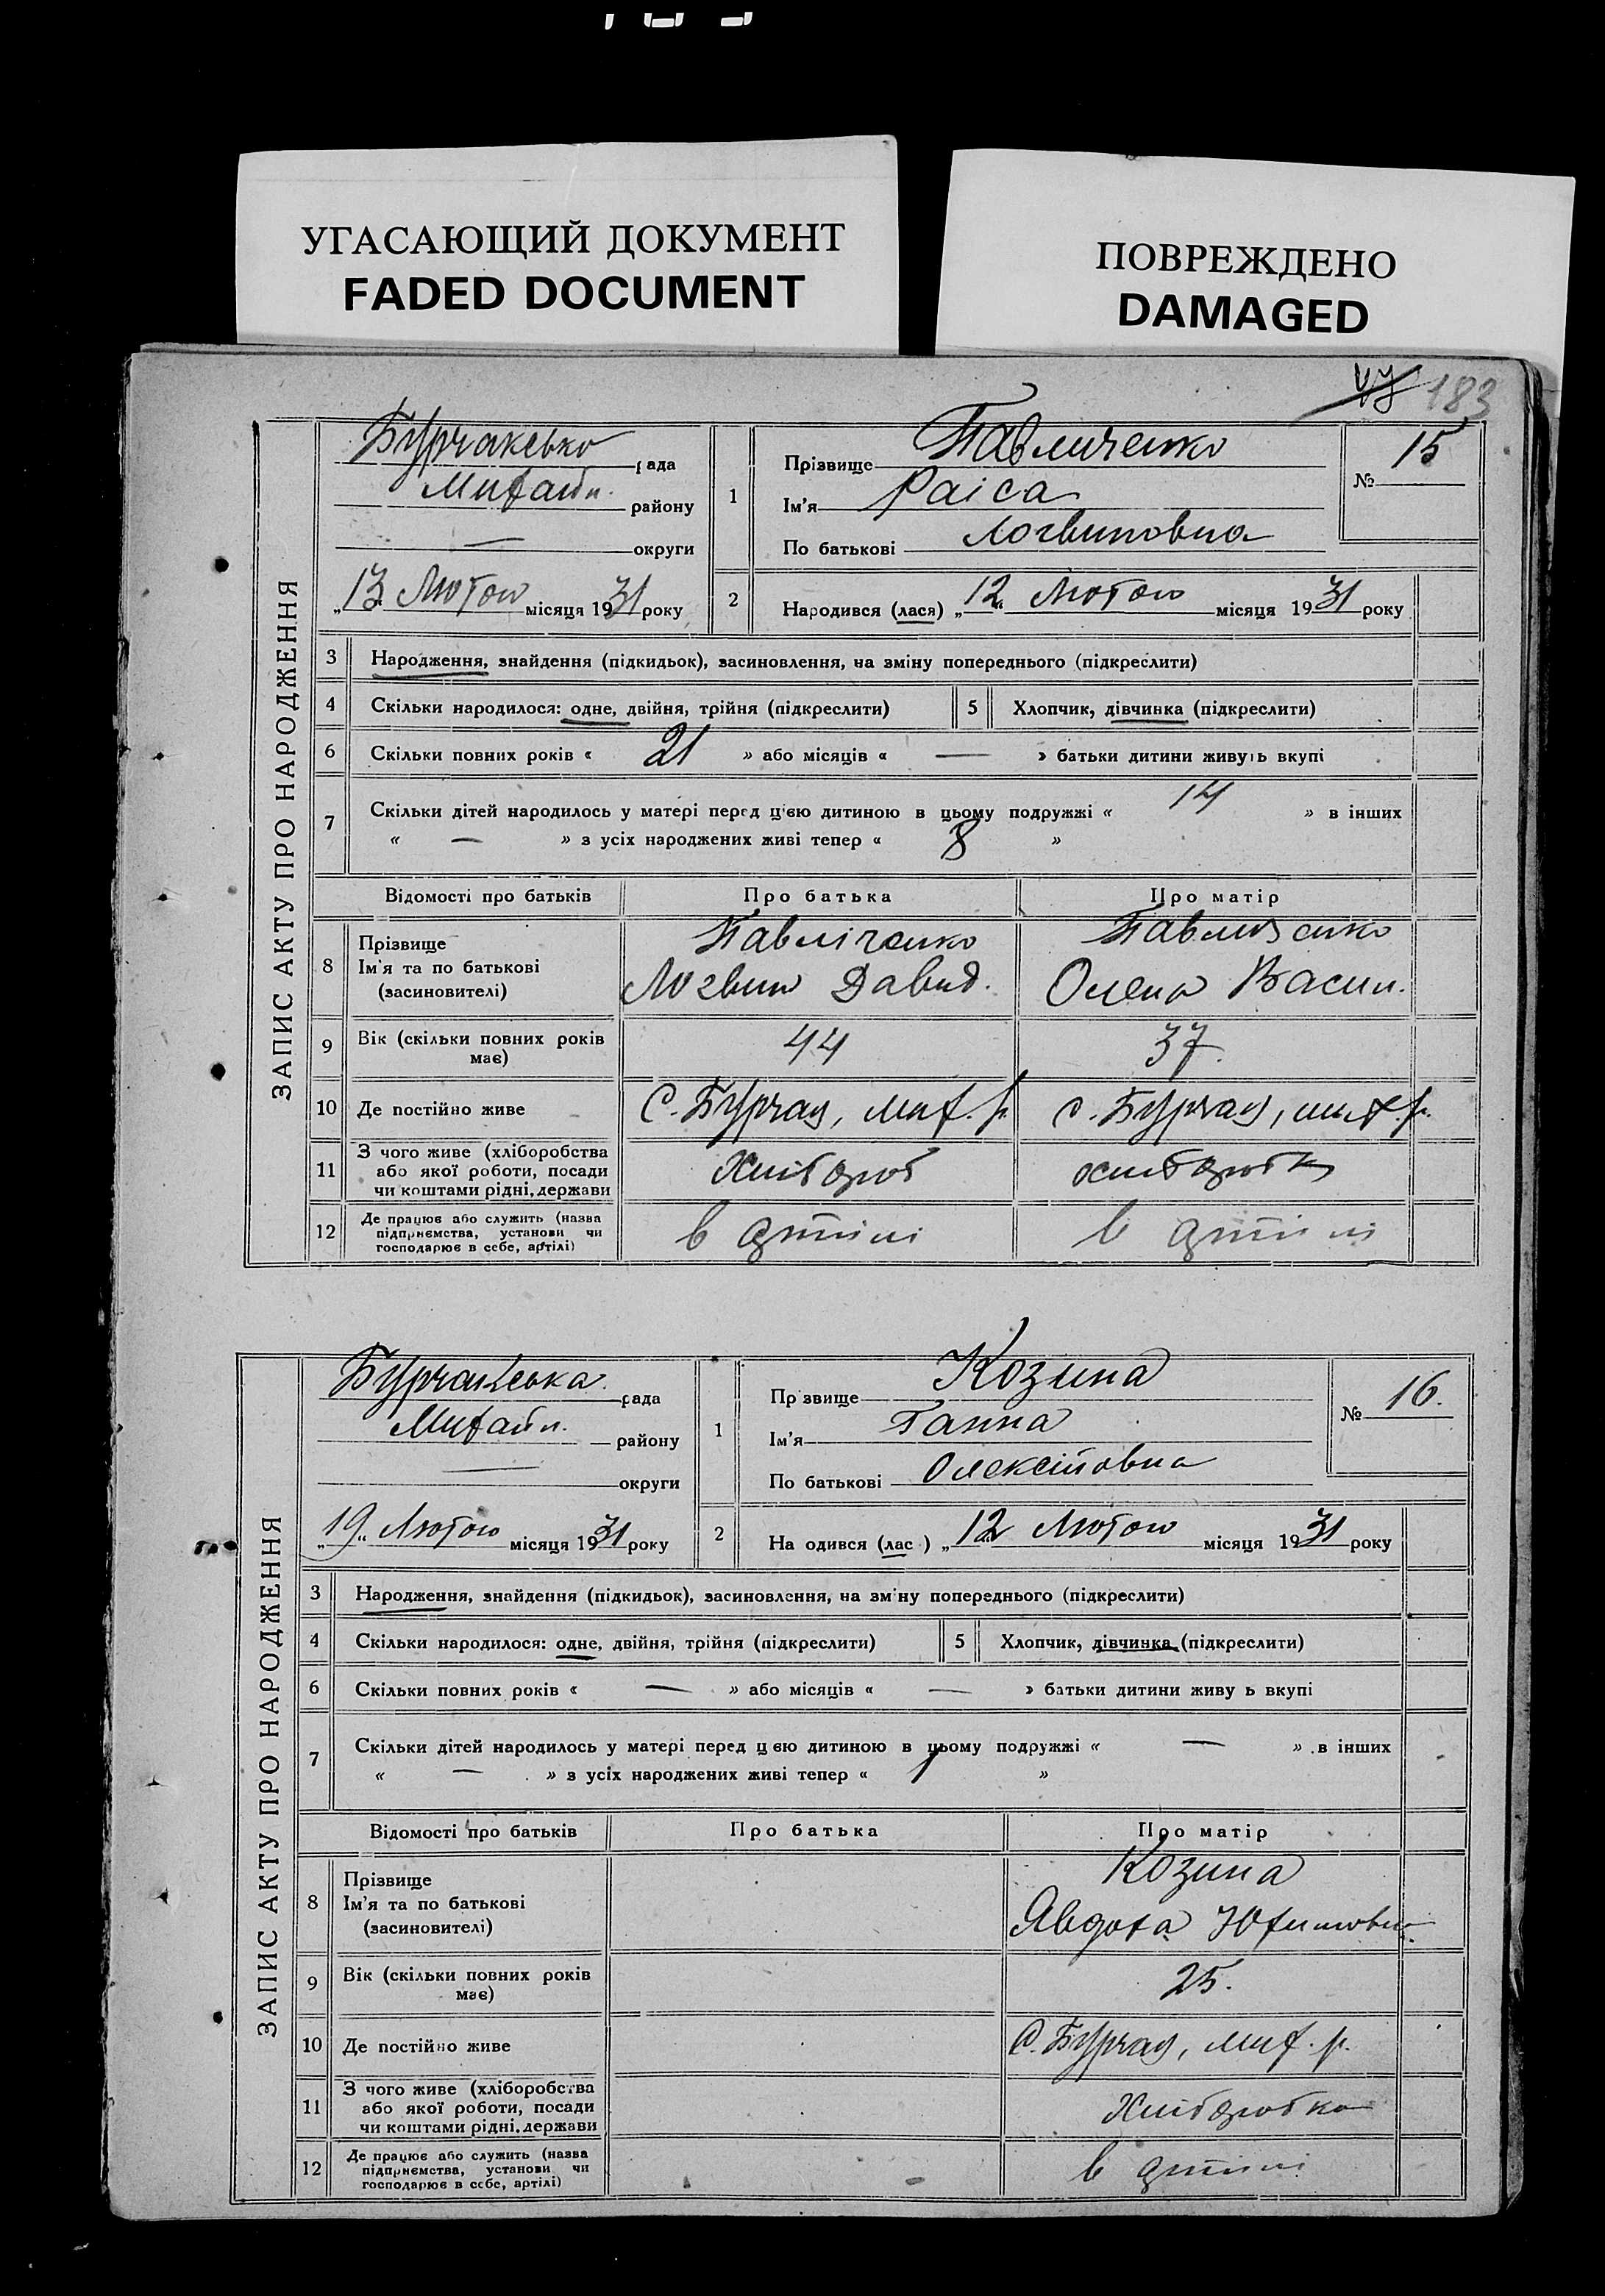 УГАСАЮЩИЙ ДОКУМЕНТ
FADED DOCUMENT
ПОВРЕЖДЕНО
DAMAGED
183
ЗАПИС АКТУ ПРО НАРОДЖЕННЯ
Бурчаксько рада
Михайл. району
— округи
„13“ Лютого місяця 1931 року
1
Прізвище Павличенко
Ім'я Раіса
По батькові Логвиновна
№ 15
2
Народився (лася) „12“ Лютого місяця 1931 року
3 Народження, знайдення (підкидьок), засиновлення, на зміну попереднього (підкреслити)
4 Скільки народилося: одне, двійня, трійня (підкреслити) 5 Хлопчик, дівчинка (підкреслити)
6 Скільки повних років « 21 » або місяців « — » батьки дитини живуть вкупі
7 Скільки дітей народилось у матері перед цією дитиною в цьому подружжі « 14 » в інших
« — » з усіх народжених живі тепер « 8 »
Відомості про батьків Про батька Про матір
8 Прізвище Павліченко Павличенко
Ім'я та по батькові Логвин Давид. Олена Васил.
(засиновителі)
9 Вік (скільки повних років має) 44 37.
10 Де постійно живе С. Бурчак, мих. р. с. Бурчак, мих. р.
11 З чого живе (хліборобства
або якої роботи, посади
чи коштами рідні, держави Хлібороб хлиборобка
12 Де працює або служить (назва
підприємства, установи чи
господарює в себе, артілі) в артілі в артілі
ЗАПИС АКТУ ПРО НАРОДЖЕННЯ
Бурчакська рада
Михайл. району
— округи
„19“ Лютого місяця 1931 року
1
Прзвище Козина
Ім'я Ганна
По батькові Олексіїовна
№ 16.
2
На одився (лас ) „12“ Лютого місяця 1931 року
3 Народження, знайдення (підкидьок), засиновлення, на зміну попереднього (підкреслити)
4 Скільки народилося: одне, двійня, трійня (підкреслити) 5 Хлопчик, дівчинка (підкреслити)
6 Скільки повних років « — » або місяців « — » батьки дитини живу ь вкупі
7 Скільки дітей народилось у матері перед цією дитиною в цьому подружжі « — » в інших
« — » з усіх народжених живі тепер « 1 »
Відомості про батьків Про батька Про матір
8 Прізвище Козина
Ім'я та по батькові Явдоха Юхимовна
(засиновителі)
9 Вік (скільки повних років має) 25.
10 Де постійно живе С. Бурчак, мих. р.
11 З чого живе (хліборобства
або якої роботи, посади
чи коштами рідні, держави Хліборобка
12 Де працює або служить (назва
підприємства, установи чи
господарює в себе, артілі) в артілі